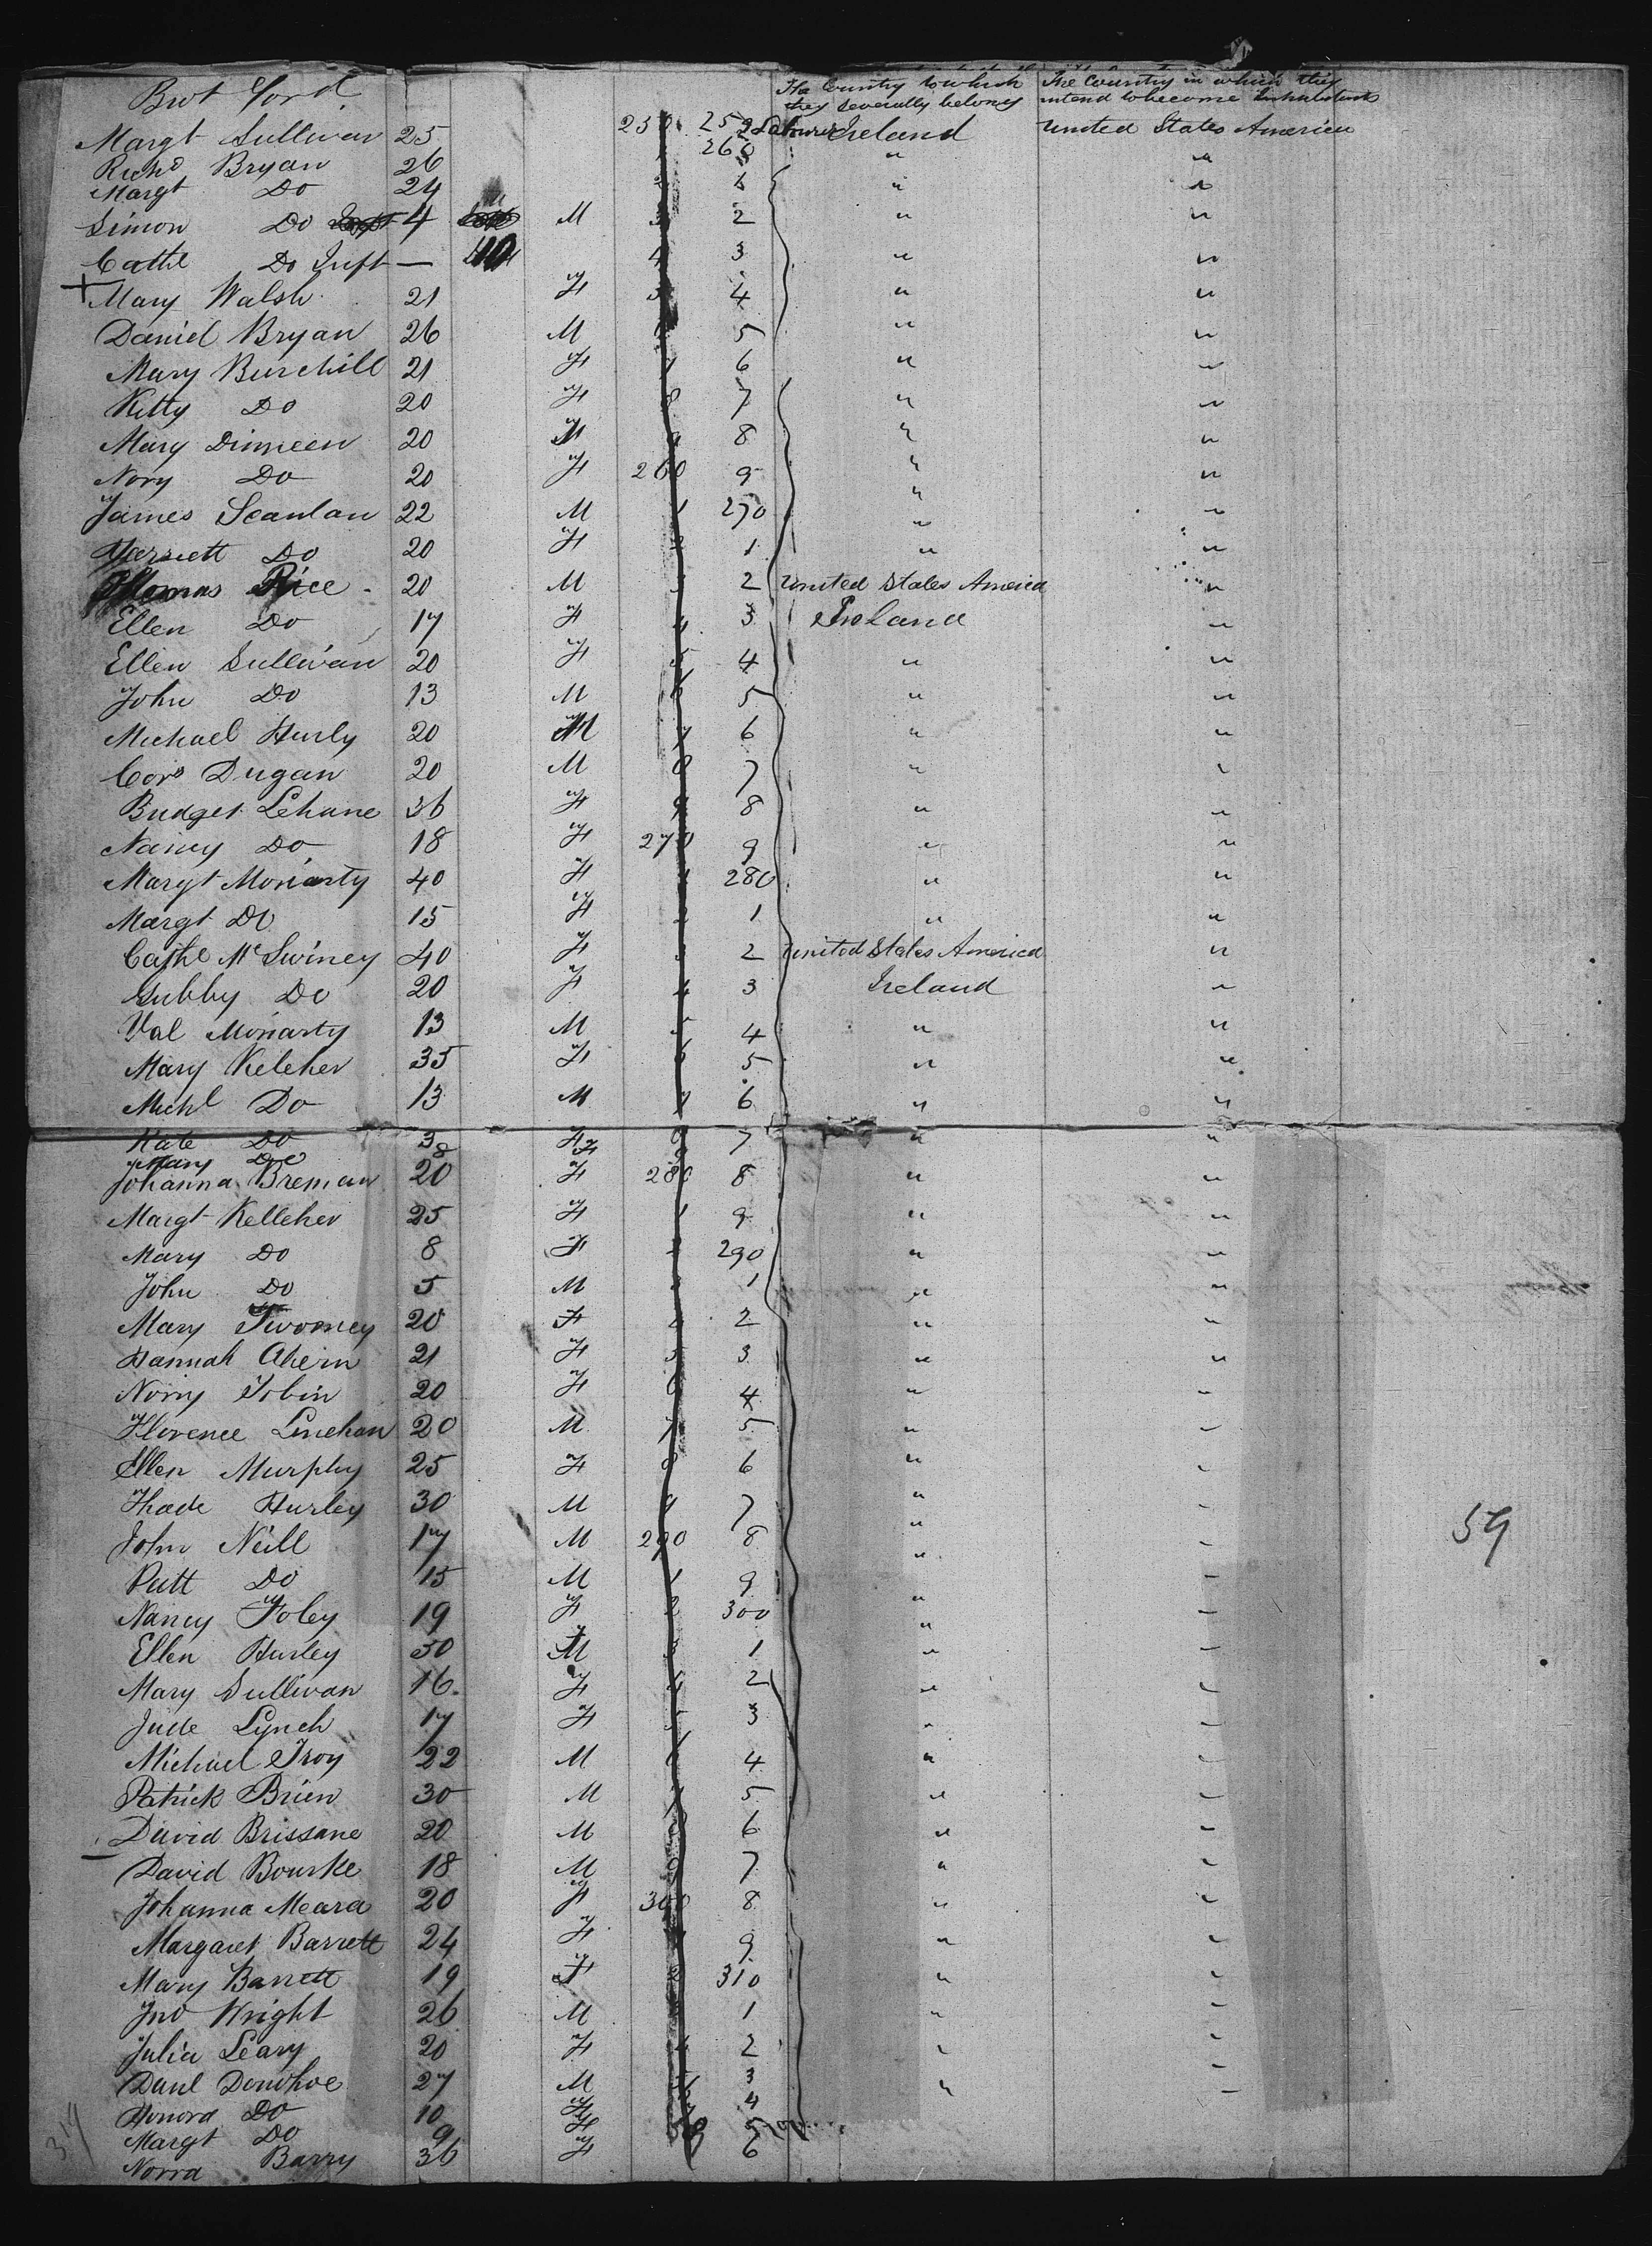 Brot Ford
The Country to which The Country in which they
they severally belong intend to become Inhabitants
Margt Sullivan 25 259 Labourer Ireland United States America
Richd Bryan 26 260 " "
Margt Do 24 " "
Simon Do 4 M 2 " "
Cathe Do Inft — 4 3 " "
+ Mary Walsh 21 F 4 " "
Daniel Bryan 26 M 5 " "
Mary Burchill 21 F 6 " "
Kitty Do 20 F 8 7 " "
Mary Dinneen 20 9 8 " "
Nory Do 20 F 260 9 " "
James Scanlan 22 M 1 270 " "
Harriett Do 20 F 1 " "
Thomas Rice 20 M 3 2 United States America "
Ellen Do 17 F 4 3 Ireland "
Ellen Sullivan 20 F 5 4 " "
John Do 13 M 6 5 " "
Michael Hurly 20 M 7 6 " "
Cors Dugan 20 M 8 7 " "
Budget Lehane 36 F 9 8 " "
Nancy Do 18 F 270 9 " "
Margt Moriarty 40 F 280 " "
Margt Do 15 F 1 " "
Cathe McSwiney 40 F 3 2 United States America "
Gubby Do 20 F 4 3 Ireland "
Val Moriarty 13 M 5 4 " "
Mary Keleher 35 F 6 5 " "
Michl Do 13 M 7 6 " "
Kate Do 3 F 7 " "
Mary Do 8 F
Johanna Brennan 20 F 280 8 " "
Margt Kelleher 25 F 1 9 " "
Mary Do 8 F 2 290 " "
John Do 5 M 3 1 " "
Mary Twomey 20 F 4 2 " "
Hannah Ahern 21 F 5 3 " "
Norry Tobin 20 F 6 4 " "
Florence Linehan 20 M 7 5 " "
Ellen Murphy 25 F 8 6 " "
Thade Hurley 30 M 9 7 " "
John Neill 17 M 290 8 " "
59
Patt Do 15 M 1 9 " "
Nancy Foley 19 F 2 300 " "
Ellen Hurley 30 3 1 " "
Mary Sullivan 16 F 4 2 " "
Jude Lynch 17 F 5 3 " "
Michael Troy 22 M 6 4 " "
Patrick Brien 30 M 7 5 " "
David Brissane 20 M 6 " "
David Bourke 18 M 9 7 " "
Johanna Meara 20 F 300 8 " "
Margaret Barrett 24 F 9 " "
Mary Barrett 19 F 2 310 " "
Jno Wright 26 M 1 " "
Julia Leary 20 F 4 2 " "
Danl Donohoe 27 M 3 " "
Honora Do 10 F 4
Margt Do 9 F 5
Norra Barry 36 F 6